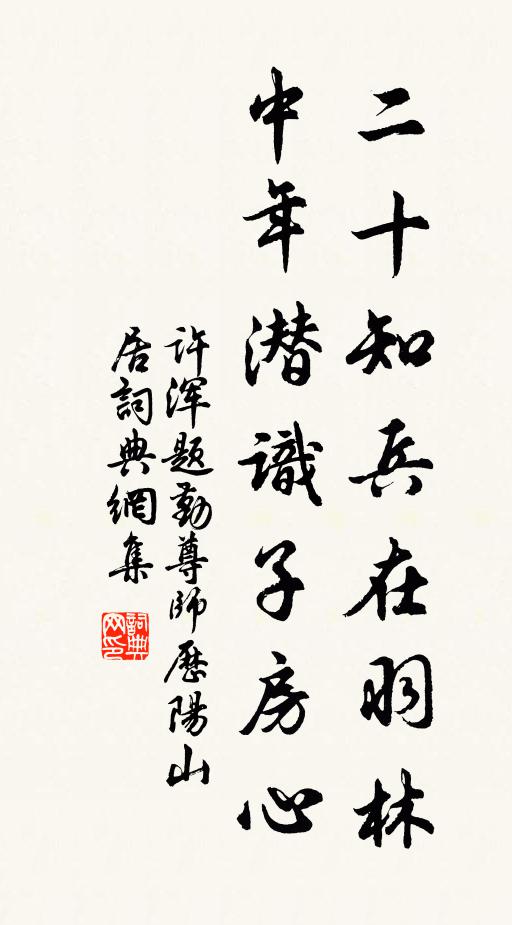 二十知兵在羽林
中年潜識子房心
许渾题勤尊師歷陽山
居詞典網集
詞典
网印